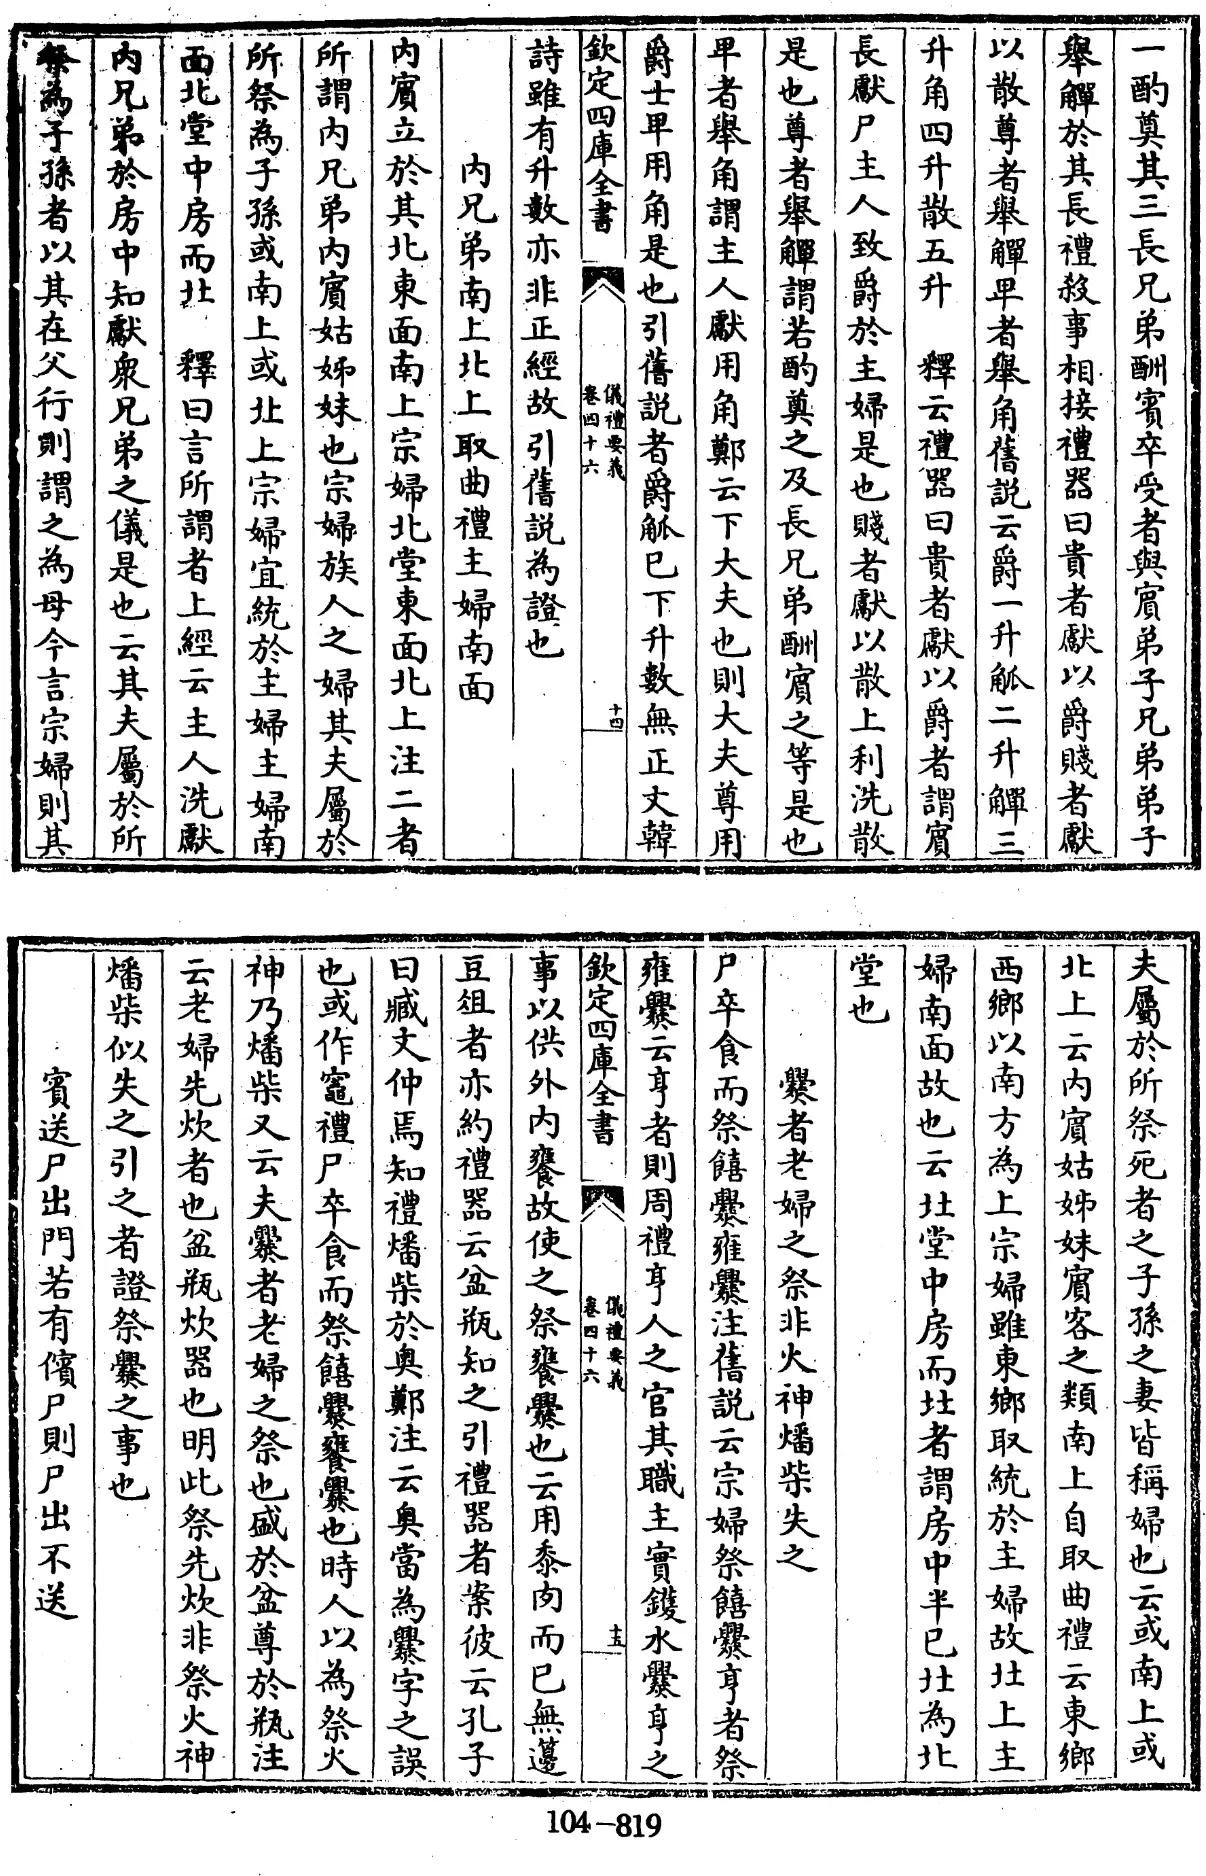 一酌奠其三長兄弟酬賓卒受者與賓弟子兄弟弟子
舉觶於其長禮殺事相接禮器曰貴者獻以爵賤者獻
以散尊者舉觶卑者舉角舊説云爵一升觚二升觶三
升角四升散五升　釋云禮器曰貴者獻以爵者謂賓
長獻尸主人致爵於主婦是也賤者獻以散上利洗散
是也尊者舉觶謂若酌奠之及長兄弟酬賓之等是也
卑者舉角謂主人獻用角鄭云下大夫也則大夫尊用
爵士卑用角是也引舊説者爵觚已下升數無正文韓
欽定四庫全書
儀禮要義
卷四十六
十四
詩雖有升數亦非正經故引舊説為證也
内兄弟南上北上取曲禮主婦南面
内賓立於其北東面南上宗婦北堂東面北上注二者
所謂内兄弟内賓姑姊妹也宗婦族人之婦其夫屬於
所祭為子孫或南上或北上宗婦宜統於主婦主婦南
面北堂中房而北　釋曰言所謂者上經云主人洗獻
内兄弟於房中如獻衆兄弟之儀是也云其夫屬於所
祭為子孫者以其在父行則謂之為母今言宗婦則其
夫屬於所祭死者之子孫之妻皆稱婦也云或南上或
北上云内賓姑姊妹賓客之類南上自取曲禮云東鄉
西鄉以南方為上宗婦雖東鄉取統於主婦故北上主
婦南面故也云北堂中房而北者謂房中半已北為北
堂也
爨者老婦之祭非火神燔柴失之
尸卒食而祭饎爨雍爨注舊説云宗婦祭饎爨亨者祭
雍爨云亨者則周禮亨人之官其職主實鑊水爨亨之
欽定四庫全書
儀禮要義
卷四十六
十五
事以供外内饔故使之祭饔爨也云用黍肉而已無籩
豆俎者亦約禮器云盆瓶知之引禮器者案彼云孔子
曰臧文仲焉知禮燔柴於奥鄭注云奥當為爨字之誤
也或作竈禮尸卒食而祭饎爨饔爨也時人以為祭火
神乃燔柴又云夫爨者老婦之祭也盛於盆尊於瓶注
云老婦先炊者也盆瓶炊器也明此祭先炊非祭火神
燔柴似失之引之者證祭爨之事也
賓送尸出門若有儐尸則尸出不送
104-819